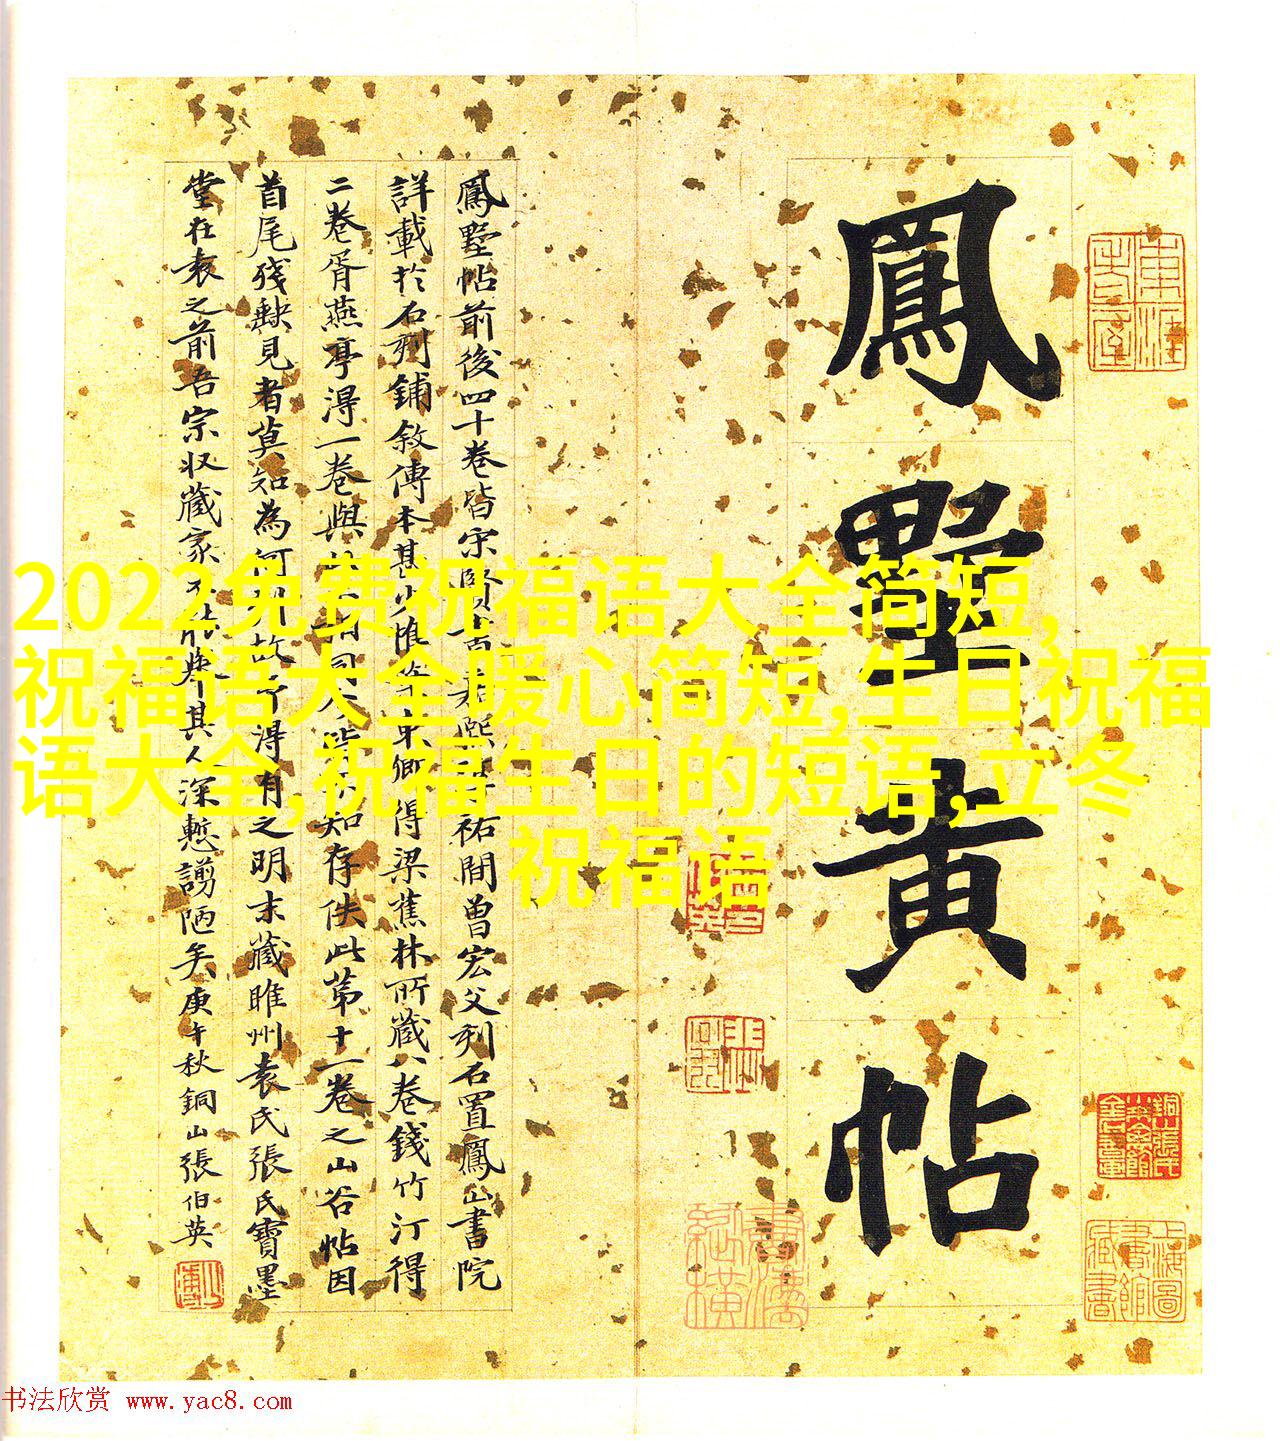 鳳墅黄帖
鳳墅帖前後四十卷皆宋賢書嘉熙祐間曾宏父刻石置鳳山書院
詳載於石刻鋪敘傳本甚少惟東卿得梁蕉林所藏八卷錢竹汀得
二卷胥燕亭得一卷與相同今皆知存佚此第十一卷之山谷帖因
首尾殘缺見者莫知為何刻故予得有之明末藏睢州袁氏張氏寶墨
堂在袁之前吾宗収藏家不能舉其人深慙謭陋矣庚午秋銅山張伯英
上海圖書館藏書
2022免费祝福语大全简短,
祝福语大全暖心简短,生日祝福
语大全,祝福生日的短语,立冬
祝福语
书法欣赏 www.yac8.com